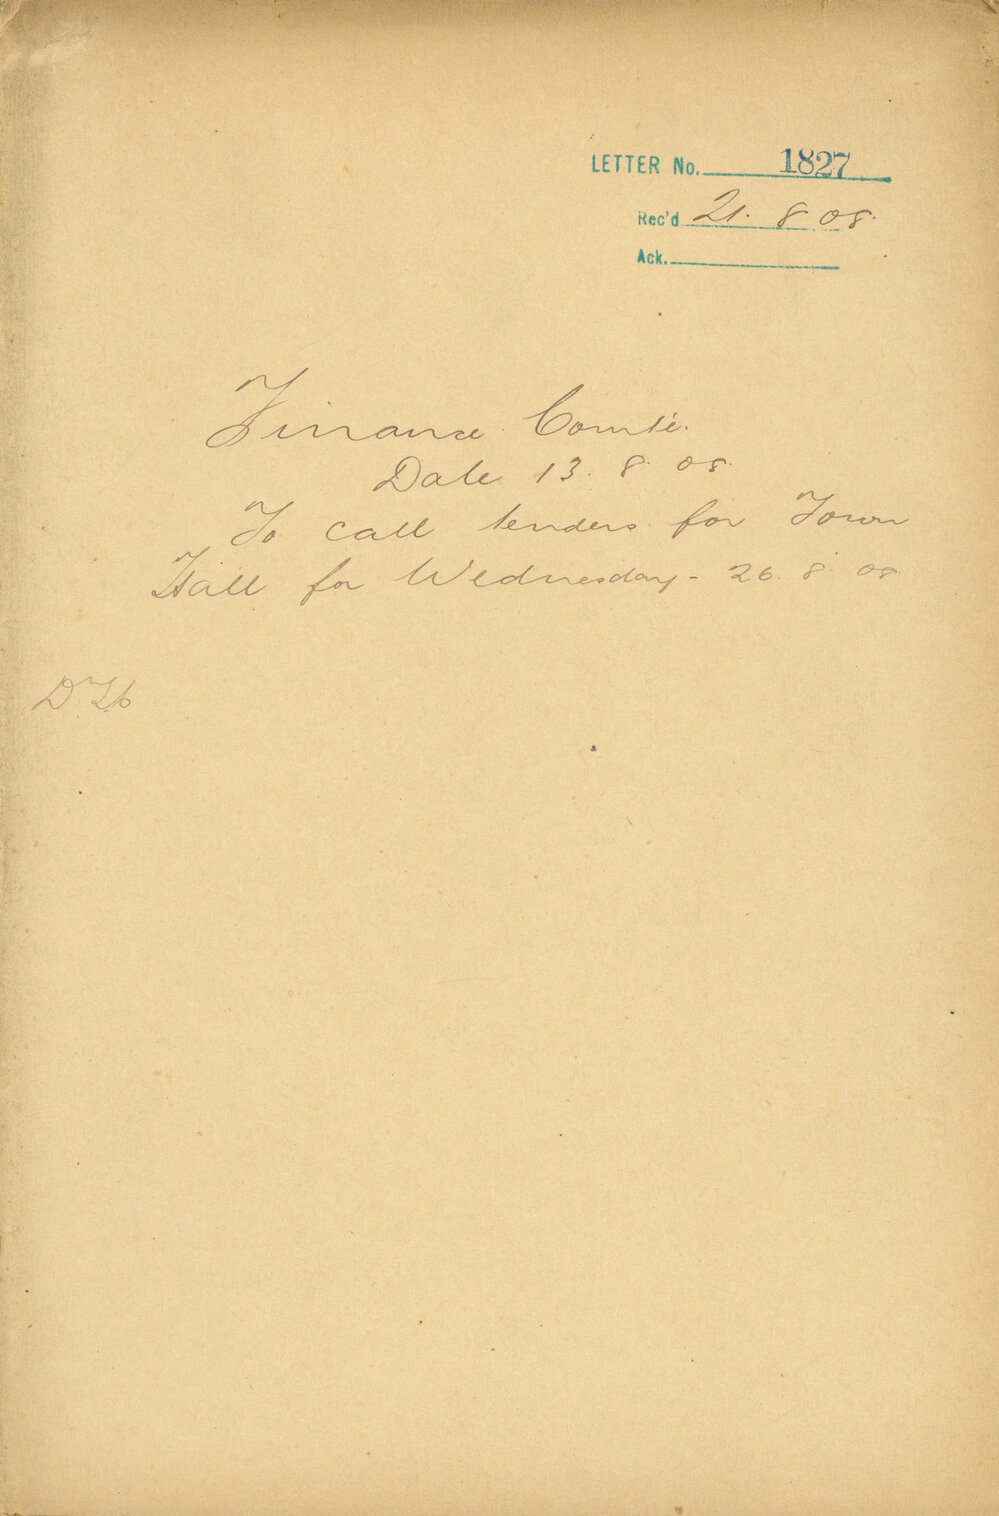 LETTER No. 1827
Rec'd 21. 8 08.
Ack.
Finance Comte.
Date 13. 8. 08.
To call tenders for Town
Hall for Wednesday - 26. 8 08